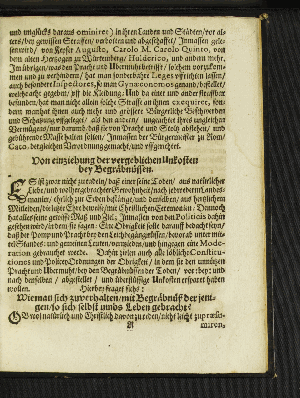 und unglücks daraus ominiret) in ihren Landen und Städten/ vor al-
ters/ bey gewissen Straffen/ verbotten und abgeschaffet/ Inmassen gele-
sen wird/ von Keyser Augusto, Carolo M. Carolo Quinto, von
dem alten Hertzogen zu Würtemberg/ Huldarico, und andern mehr.
Im übrigen/ was den Pracht und Ubermuht betrifft/ solchem vorzukom-
men und zu verhindern/ hat man sonderbahre Leges vorschrieben lassen/
auch besondere Inspectores, so man Gynæconomos genant/ bestellet/
welche acht gegeben/ so die Kleidung und da einer und ander straffbar
befunden/ hat man nicht allein solche Straffe an ihnen exequiret, son-
dern man hat ihnen auch mehr und grössere Bürgerliche Beschwerden
und Schatzung aufferleget/ als den andern/ ungeachtet ihres ungleichen
Vermögens/ nur darumb/ daß sie von Pracht und Stoltz abstehen/ und
gebührende Masse halten solten/ Inmassen der Bürgermeister zu Rom/
Cato, dergleichen Verordnung gemacht/ und effectuiret.
Von einziehung der vergeblichen Unkosten
bey Begräbnüssen.
ES ist zwar nicht zu tadeln/ daß einer seine Todten/ aus natürlicher
Liebe/ und wolhergebrachter Gewohnheit/ nach jedweder Landes-
Manier/ ehrlich zur Erden bestättige/ und derselben/ aus hertzlichem
Mitleiden/ die letzte Ehre beweise/ mit Christlichen Ceremonien. Dennoch
hat alles seine gewisse Maß und Ziel/ Inmassen von den Politicis dahin
gesehen wird/ in dem sie sagen: Eine Obrigkeit solle darauff bedacht seyn/
daß der Pomp und Pracht bey den Leichbegängnüssen/ bevorab unter mit-
tel Standes- und gemeinen Leuten/ vermieden/ und hingegen eine Mode-
ration gebrauchet werde. Dahin zielen auch alle löbliche Constitu-
tiones und Policey-Ordnungen der Obrigkeit/ in dem sie den unnützen
Pracht und Ubermuht/ bey den Begräbnüssen der Todten/ vor- bey- und
nach denselben/ abgestellet/ und überflüssige Unkosten ersparet haben
wollen. Hierbey fraget sichs:
Wie man sich zu verhalten/ mit Begräbnüs der jeni-
gen/ so sich selbst umbs Leben gebracht?
OB wol natürlich und Christlich davon zu reden/ nicht leicht zu præsu-
A
miren,